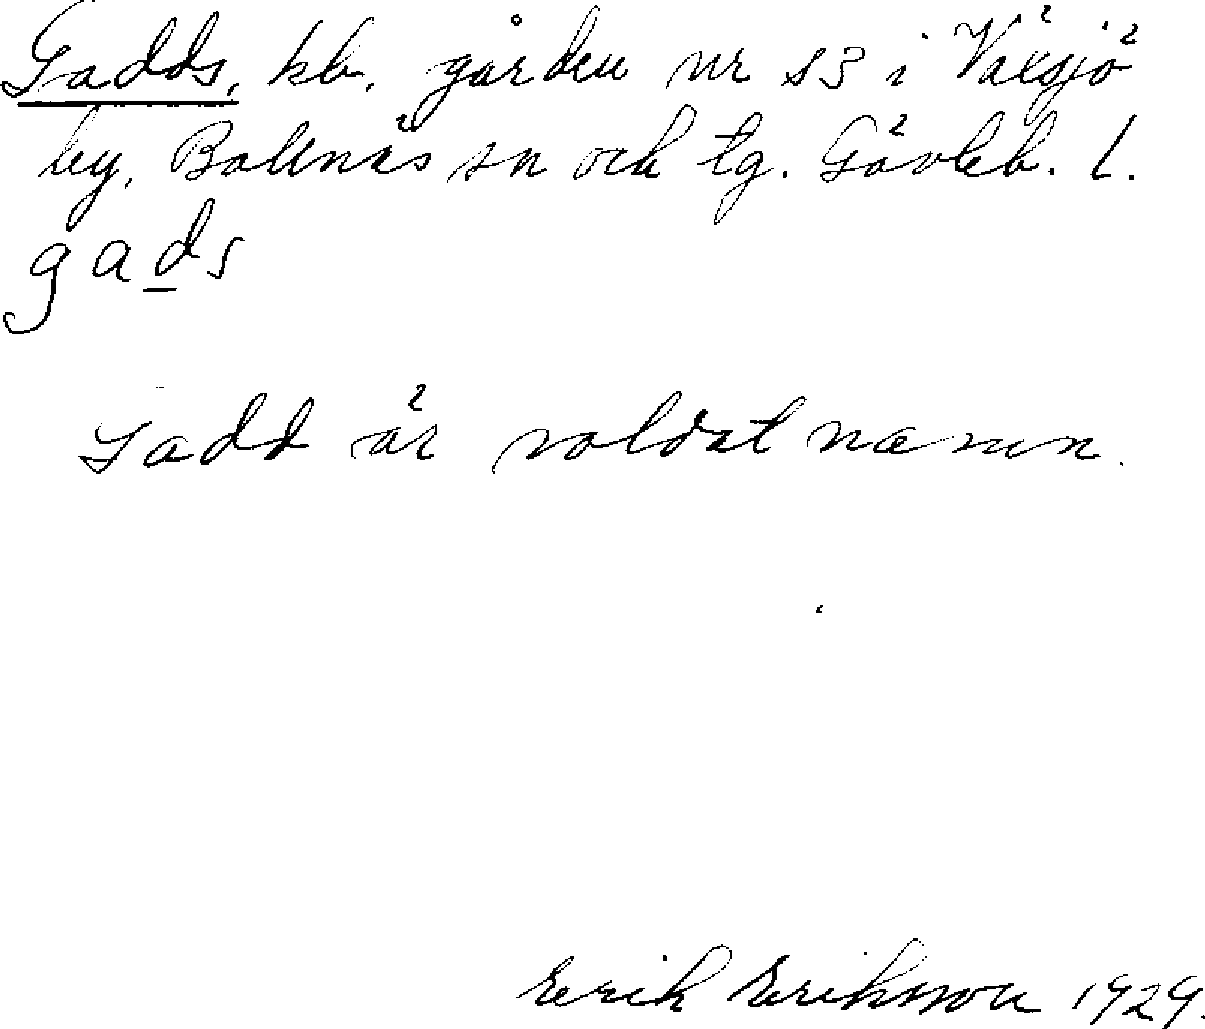 Gadds, kb. gården nr 53 i Växsjö
by, Bollnäs sn och tg. Gävleb. l.
gads
Gadd är soldatnamn.
Erik Eriksson 1929.